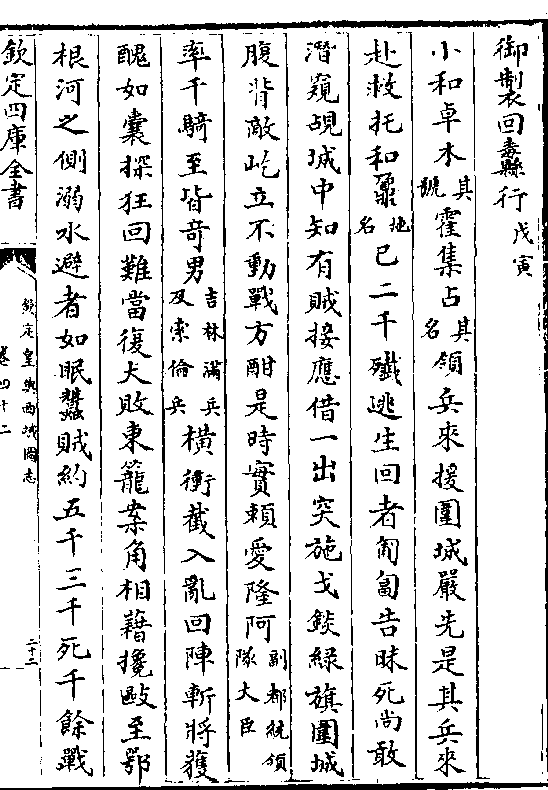 御製回纛縣行戊寅
小和卓木其號霍集占其名領兵來援圍城嚴先是其兵來
赴救托和鼐地名已二千殱逃生回者匍匐告昧死尚敢
潛窺覘城中知有賊接應借一出突施戈鋑綠旗圍城
腹背敵屹立不動戰方酣是時實賴愛隆阿副都統領隊大臣
率千騎至皆竒男吉林滿兵及索倫兵橫衝截入亂回陣斬將獲
醜如囊探狂回難當復大敗東籠案角相藉攙毆至鄂
根河之側溺水避者如眠蠶賊約五千三千死千餘戰
欽定四庫全書
欽定皇輿西域圖志
卷四十二
二十二